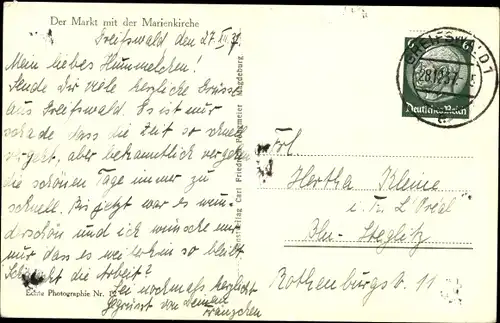 Der Markt mit der Marienkirche
Greifswald den 27. XII. 37.
Mein liebes Hummelchen!
Sende Dir viele herzliche Grüsse
aus Greifswald. Es ist nur
schade dass die Zeit so schnell
vergeht, aber bekanntlich vergehen
die schönen Tage immer zu
schnell. Bis jetzt war es wun-
derschön und ich wünsche mir
nur dass es weiterhin so bleibt.
Schmeckt die Arbeit?
Sei nochmals herzlichst
gegrüsst von Deinem
Fränzchen
Echte Photographie Nr.
Verlag Carl Friedrich Magdeburg
GREIFSWALD 1
28.12.37
6
Deutsches Reich
Frl
Hertha Kleine
i. Fa. L'Oréal
Bln-Steglitz
Rothenburgstr. 11